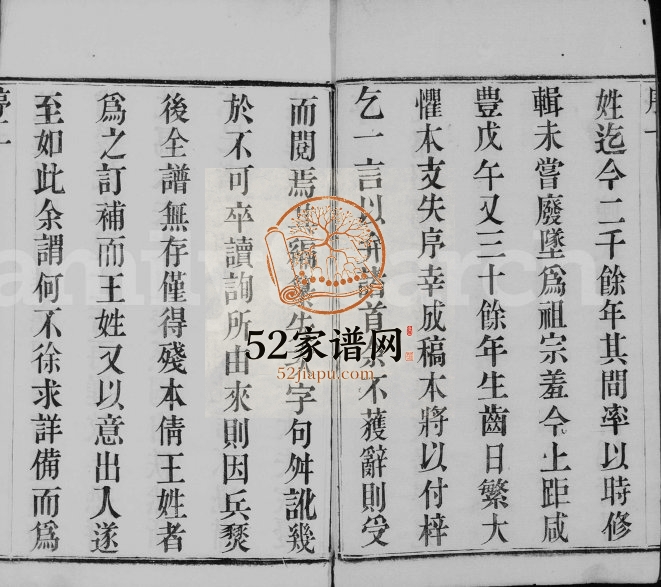 序一
姓迄今二千餘年其間率以時修
輯未嘗廢墜爲祖宗羞今上距咸
豐戊午又三十餘年生齒日繁大
懼本支失序幸成稿本將以付梓
乞一言以弁譜首余不獲辭則受
而閱焉其編失字句舛訛幾
於不可卒讀詢所由來則因兵燹
後全譜無存僅得殘本倩王姓者
爲之訂補而王姓又以意出入遂
至如此余謂何不徐求詳備而爲
序一
52家谱网
52jiapu.com